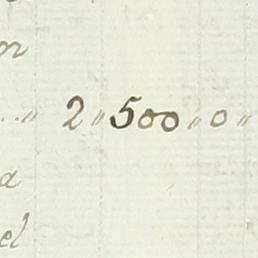 or
..〃 2〃500〃0〃
a
el